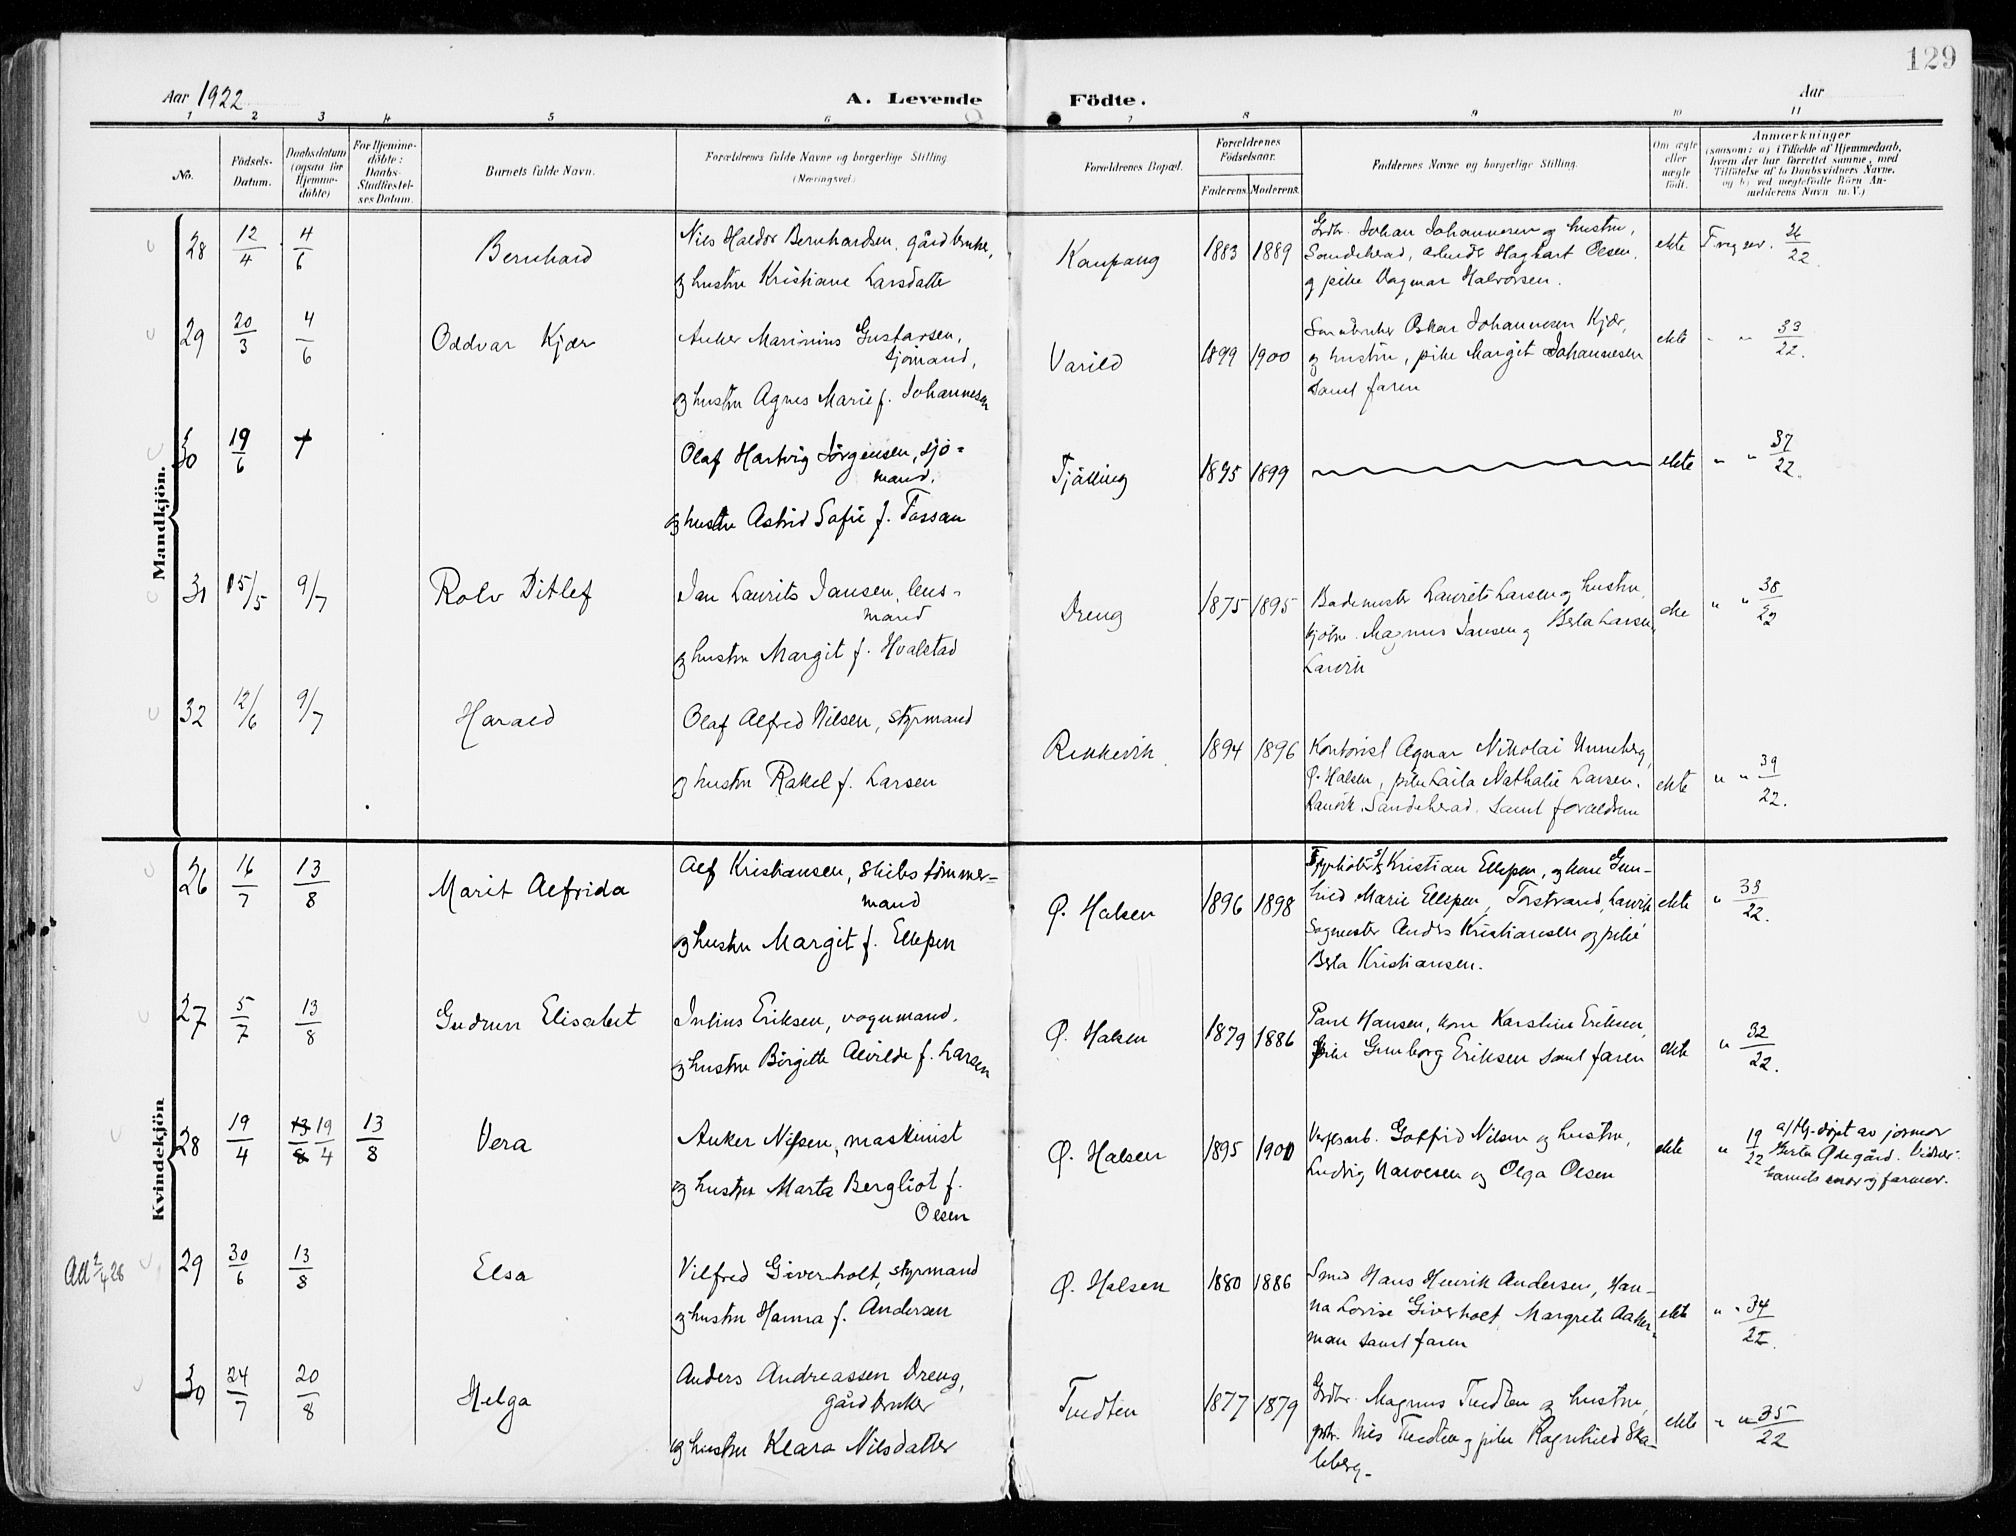 129
Aar 1922
A. Levende
Födte.
Aar
1 2 3 4 5 6 7 8 9 10 11
No.
Födsels-
Datum.
Daabsdatum
(ogsaa for
Hjemme-
döbte)
For Hjemme-
döbte:
Daabs-
Stadfæstel-
ses Datum.
Barnets fulde Navn.
Forældrenes fulde Navne og borgerlige Stilling
(Næringsvei)
Forældrenes Bopæl.
Forældrenes
Födselsaar.
Faderens. Moderens.
Faddernes Navne og borgerlige Stilling.
Om ægte
eller
uægte
födt.
Anmærkninger
(saasom: a) i Tilfælde af Hjemmedaab,
hvem der har forrettet samme, med
Tilföielse af to Daabsvidners Navne,
og b) ved uægtefödte Börn An-
melderens Navn m. V.)
Mandkjön.
28 12/4 4/6 Bernhard
Nils Haldor Bernhardsen, gårdbruker,
og hustru Kristiane Larsdatter
Kaupang 1883 1889
Grdbr. Johan Johannesen og hustru,
Sandeherad, Hagbart Olsen,
og pike Dagmar Halvorsen.
ekte F. reg nr. 26/22.
29 20/3 4/6 Oddvar Kjær
Anker Marinius Gustavsen,
sjømand,
og hustru Agnes Marie f. Johannesen
Varild 1899 1900
Oskar Johannesen Kjær,
og hustru, pike Margit Johannesen
samt faren
ekte " " 33/22.
30 19/6 †
Olaf Hartvig Jørgensen, sjø-
mand.
og hustru Astrid Sofie f. Tassan
Tjølling 1895 1899
ekte " " 37/22.
31 15/5 9/7 Rolv Ditlef
Jan Laurits Jansen, lens-
mand
og hustru Margit f. Hvalstad
Dreng 1875 1895
Bademester Laurits Larsen og hustru,
Magnus Jansen og Berta Larsen,
Larvik
ekte " " 38/22
32 12/6 9/7 Harald
Olaf Alfred Nilsen, styrmand
og hustru Rakel f. Larsen
Rekkevik. 1894 1896
Kontorist Agnar Nikolai Unneberg,
Ø. Halsen, pike Laila Nathalie Larsen,
Larvik, Sandeherad. samt forældrene
ekte " " 39/22.
Kvindekjön
26 16/7 13/8 Marit Alfrida
Alf Kristiansen, skibstømmer-
mand
og hustru Margit f. Ellefsen
Ø. Halsen 1896 1898
Kristian Ellefsen, og kone Gun-
hild Marie Ellefsen, Torstrand, Larvik
Sagmester Anders Kristiansen og pike
Berta Kristiansen.
ekte " 33/22.
27 5/7 13/8 Gudrun Elisabet
Julius Eriksen, vognmand.
og hustru Birgitte Alvilde f. Larsen
Ø. Halsen 1879 1886
Paul Hansen, kone Karstine Eriksen,
pike Gunborg Eriksen samt faren
ekte " 32/22.
28 19/4 13/8 19/4 13/8 Vera
Anker Nilsen, maskinist
og hustru Marta Bergliot f.
Olsen
Ø. Halsen 1895 1900
Verftsarb. Gotfrid Nilsen og hustru,
Ludvig Narvesen og Olga Olsen
ekte " 19/22
a/ Hj.døpt av jormor
Berta Ødegård. Vidner:
barnets mor og farmor.
All 2/4 28
29 30/6 13/8 Elsa
Vilfred Giverholt, styrmand
og hustru Hanna f. Andersen
Ø. Halsen 1880 1886
Smed Hans Henrik Andersen, Han-
na Lovise Giverholt, Margrete Aaker-
man samt faren
ekte " " 34/22.
30 24/7 20/8 Helga
Anders Andreassen Dreng,
gårdbruker
og hustru Klara Nilsdatter
Tvedten 1877 1879
Grdbr. Magnus Tvedten og hustru,
grdbr. Nils Tvedten og pike Ragnhild Ska-
leberg.
ekte " " 35/22